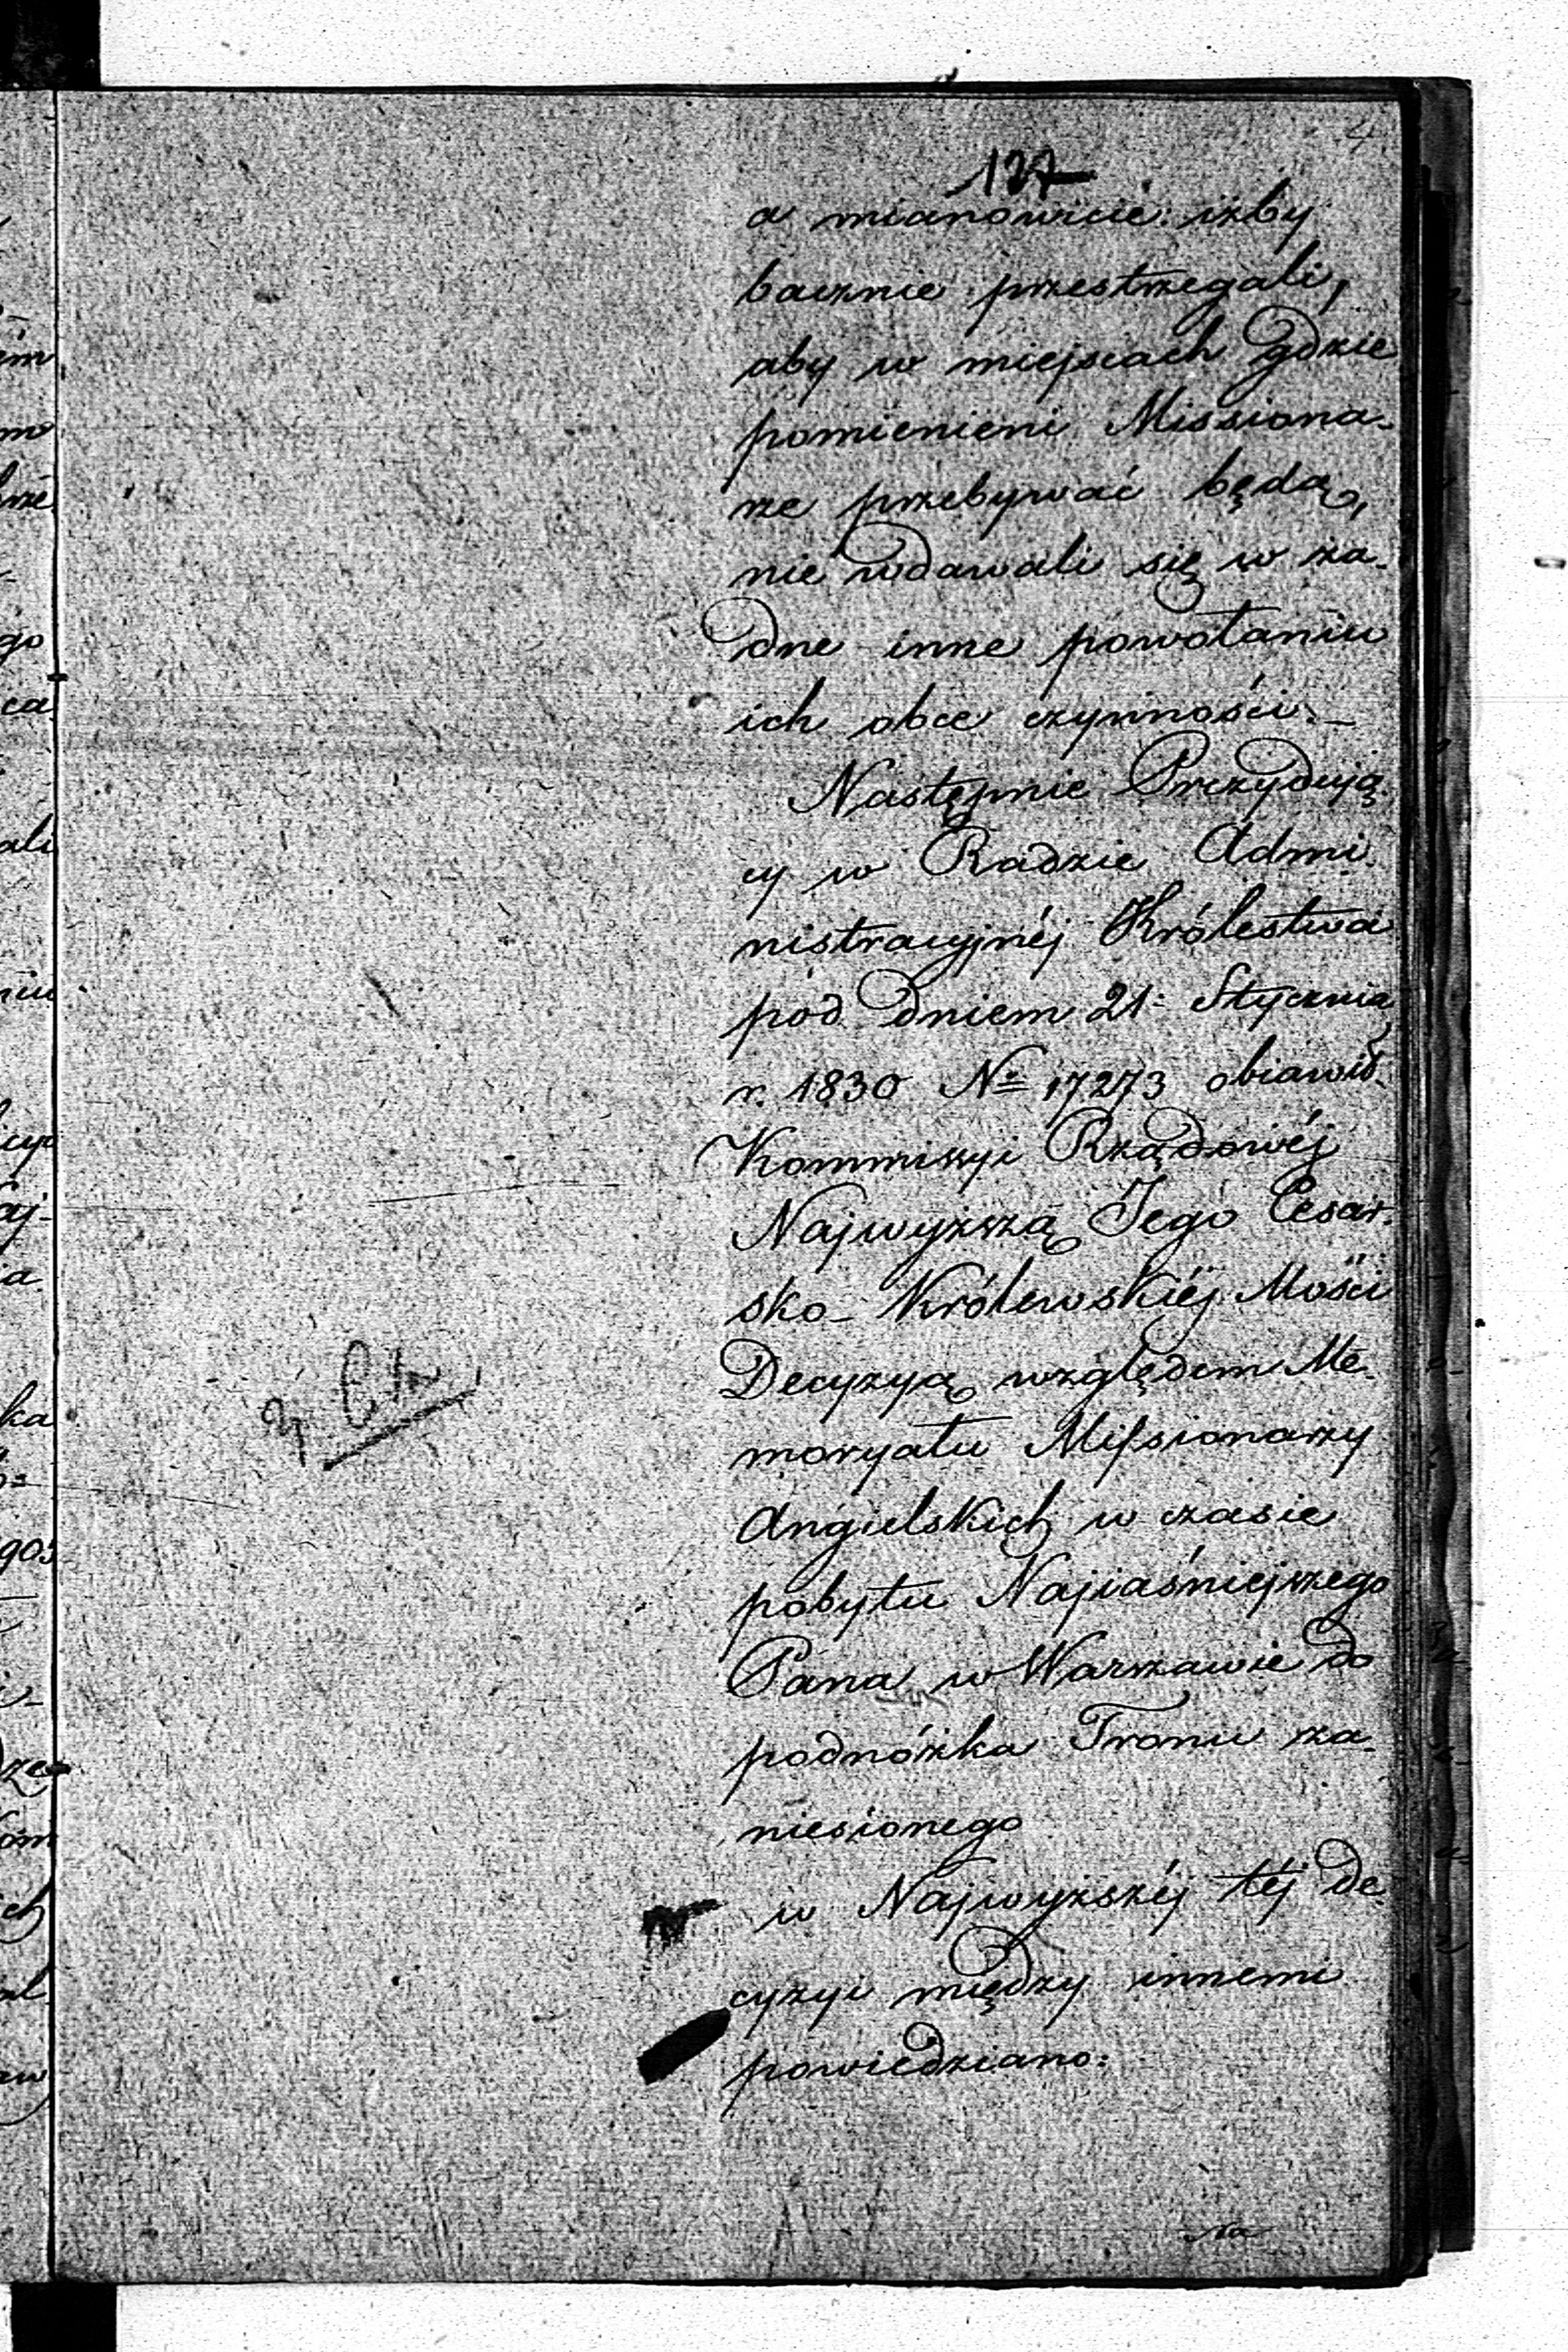 4
127
a mianowicie: iżby
bacznie przestrzegali,
aby w miejscach gdzie
pomienieni Missiona-
rze przebywać będą,
nie wdawali się w ża-
dne inne powołaniu
ich obce czynności. –
Następnie Prezydują-
cy w Radzie Admi-
nistracyjnéj Królestwa
pod dniem 21: Stycznia
r. 1830 No 17273 obiawił
Kommissyi Rządowéj
Najwyższą Jego Cesar-
sko-Królewskiéj Mości
Decyzyą względem Me-
moryału Missionarzy
Angielskich w czasie
pobytu Najiaśniejszego
Pana w Warszawie do
podnóżka Tronu za-
niesionego
w Najwyższéj téj de-
cyzyi między innemi
powiedziano:
Na